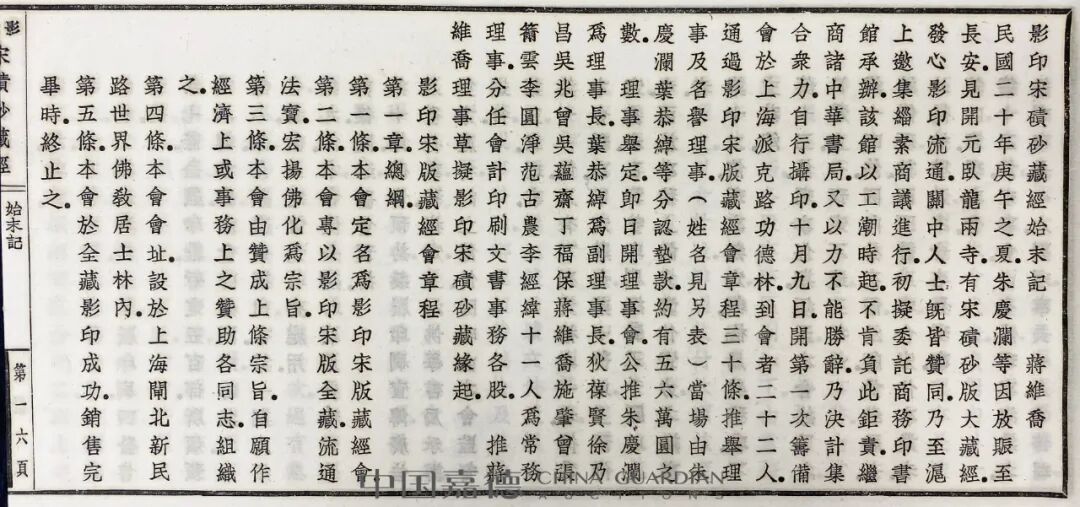 影印宋磧砂藏經始末記 蔣維喬
民國二十年庚午之夏.朱慶瀾等因放賑至
長安.見開元臥龍兩寺.有宋磧砂版大藏經.
發心影印流通.關中人士旣皆贊同.乃至滬
上邀集緇素商議進行.初擬委託商務印書
館承辦.該館以工潮時起.不肯負此鉅責.繼
商諸中華書局.又以力不能勝辭.乃決計集
合衆力.自行攝印.十月九日.開第一次籌備
會於上海派克路功德林.到會者二十二人.
通過影印宋版藏經會章程三十條.推舉理
事及名譽理事.(姓名見另表)當場由朱
慶瀾葉恭綽等分認墊款.約有五六萬圓之
數.
理事舉定.卽日開理事會.公推朱慶瀾
爲理事長.葉恭綽爲副理事長.狄葆賢徐乃
昌吳兆曾吳蘊齋丁福保蔣維喬施肇曾張
雲李圓淨范古農李經緯十二人爲常務
理事.分任會計印刷文書事務各股.推蔣
維喬理事草擬影印宋磧砂藏緣起.
影印宋版藏經會章程
第一章.總綱.
第一條.本會定名爲影印宋版藏經會.
第二條.本會專以影印宋版全藏.流通
法寶.宏揚佛化爲宗旨.
第三條.本會由贊成上條宗旨.自願作
經濟上或事務上之贊助各同志.組織
之.
第四條.本會會址.設於上海閘北新民
路世界佛敎居士林內.
第五條.本會於全藏影印成功.銷售完
畢時.終止之.
影宋磧砂藏經
始末記
第一六頁
中国嘉德 CHINA GUARDIAN AUCTIONS